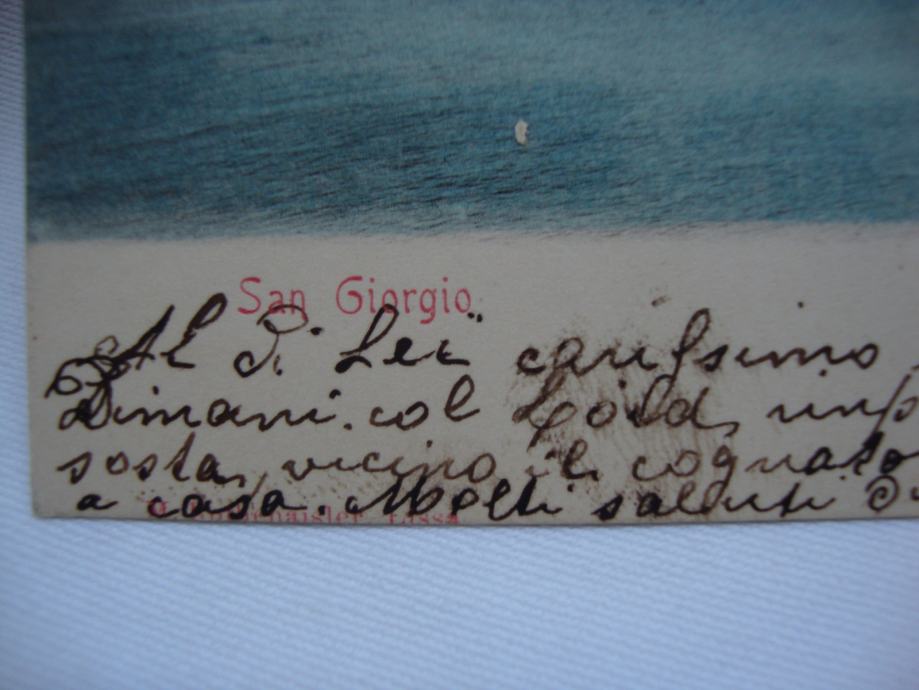 San Giorgio.
Al Di Lei carissimo
Dimani. col Gold,
sosta, vicino il cognato
a casa. Molti saluti